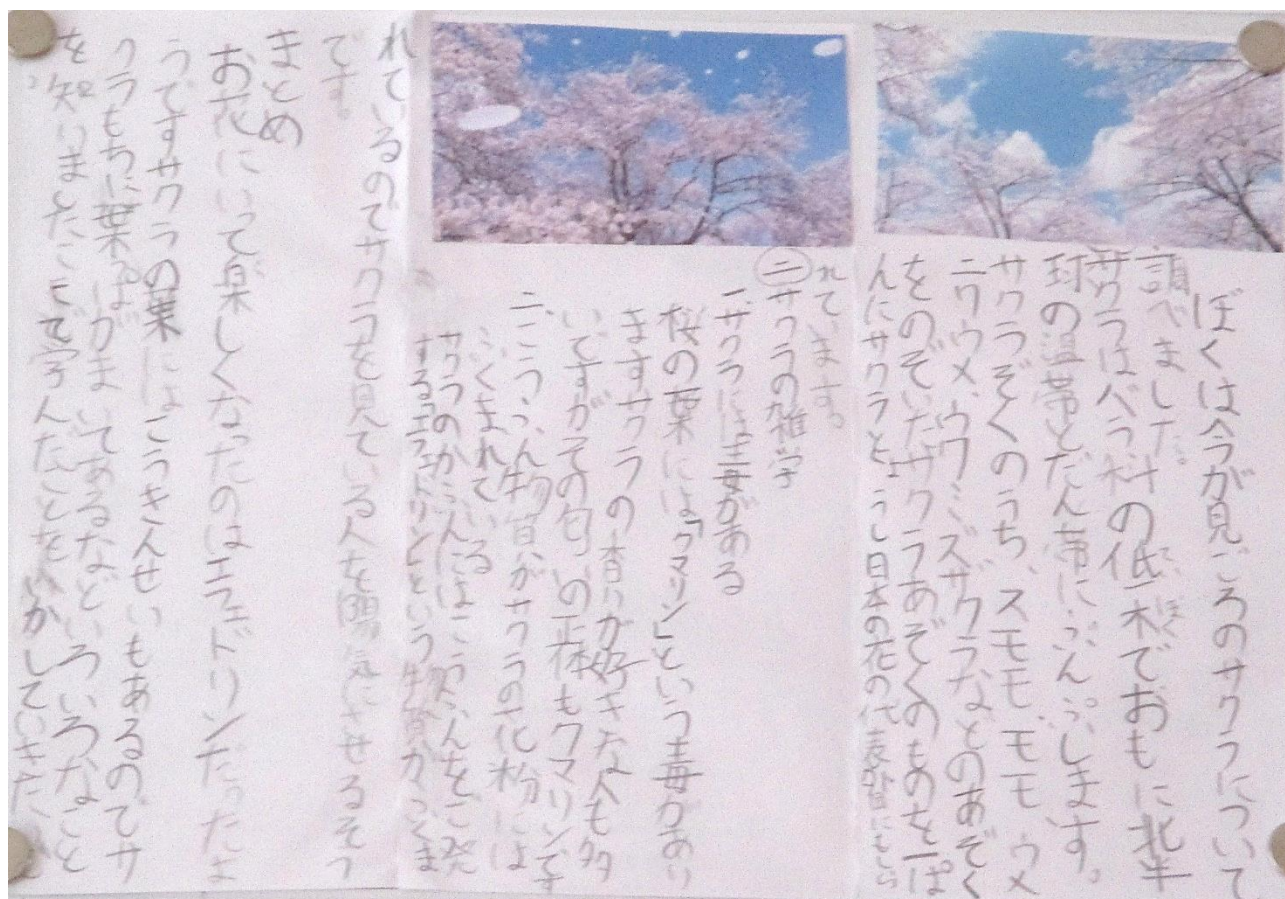 ぼくは今が見ごろのサクラについて
調べました。
サクラはバラ科の低木でおもに北半
球の温帯とだん帯にぶんぷします。
サクラぞくのうち、スモモ、モモ、ウメ
ニワウメ、ウワミズザクラなどのあぞく
をのぞいたサクラあぞくのものを一ぱ
んにサクラとしょうし日本の花の代表
れています。
㊁サクラの雑学
一、サクラには毒がある
桜の葉には「クマリン」という毒があり
ますサクラの香りが好きな人も多
いですがその匂いの正体もクマリンです
二、こうふん物質がサクラの花粉には
ふくまれている
サクラのかふんにはこうふんをご発
するエフェドリンという物質がふくま
れているのでサクラを見ている人を陽気にさせるそう
です。
まとめ
お花にいって楽しくなったのはエフェドリンだったよ
うですサクラの葉にはこうきんせいもあるのでサ
クラもちに葉っぱがまいてあるなどいろいろなこと
を知りましたここで学んだことを
かしていきた